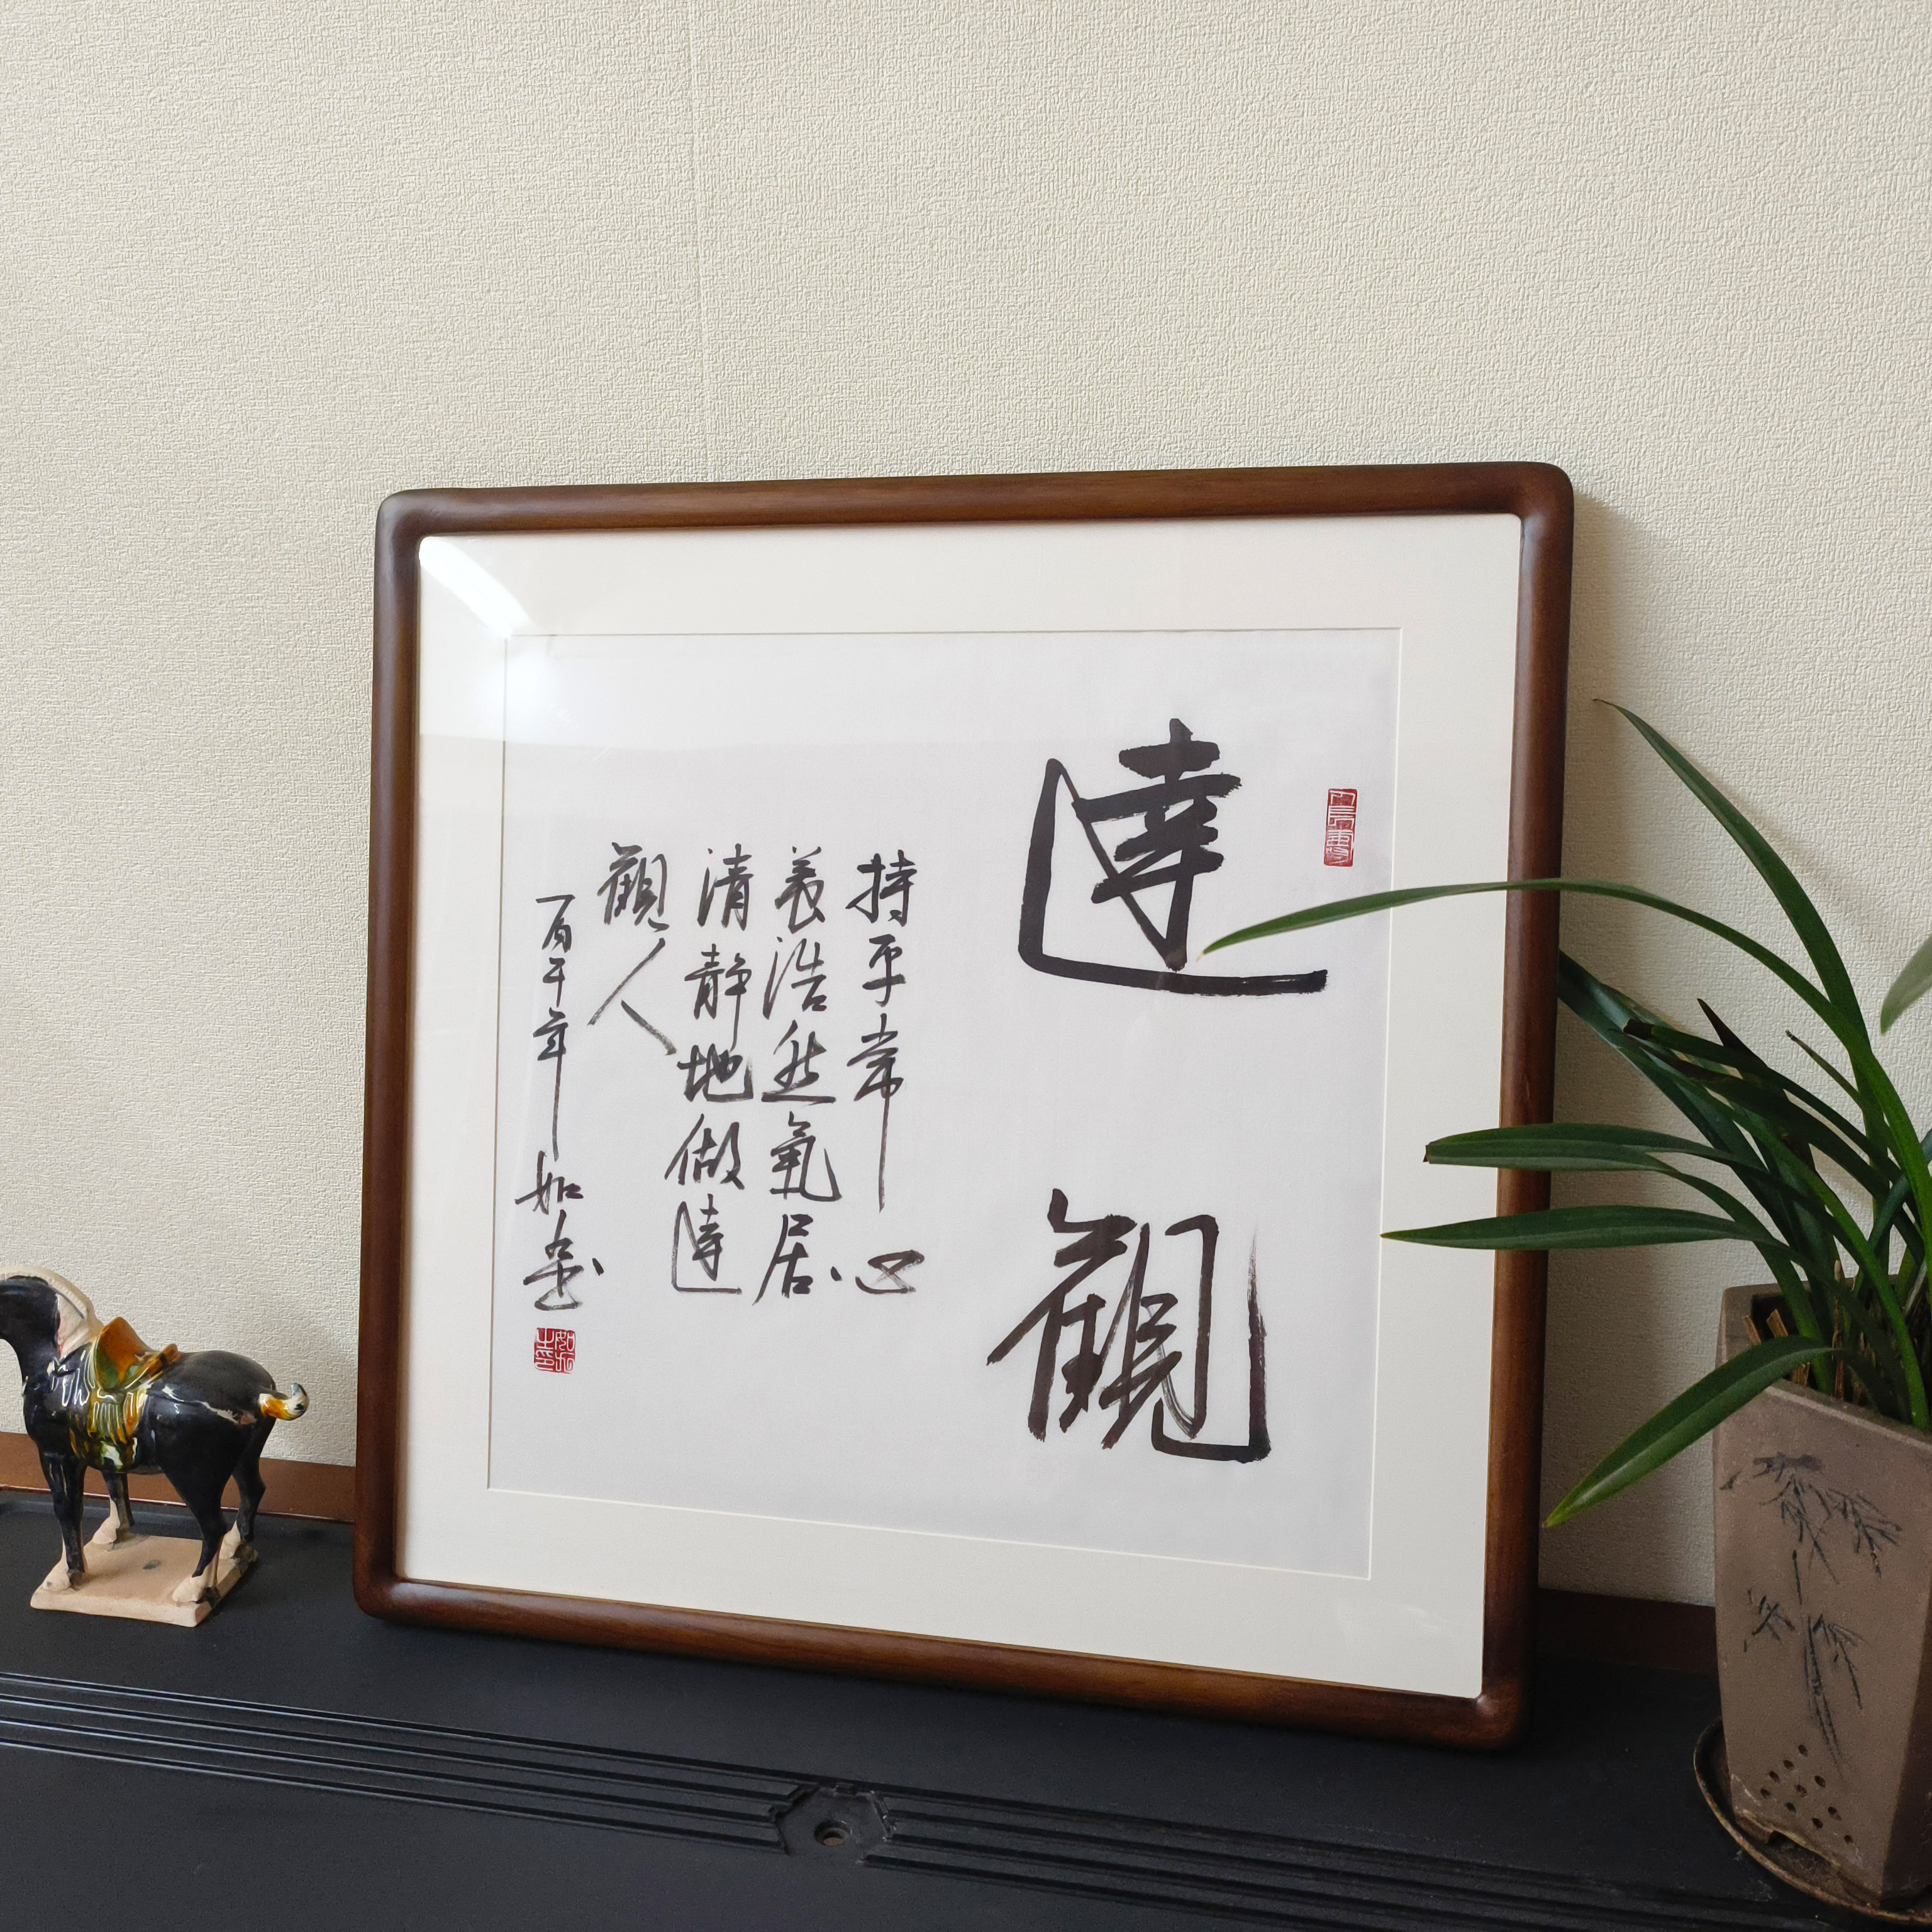 達觀
持平常心
養浩然氣居
清靜地做達
觀人
丙午年 如